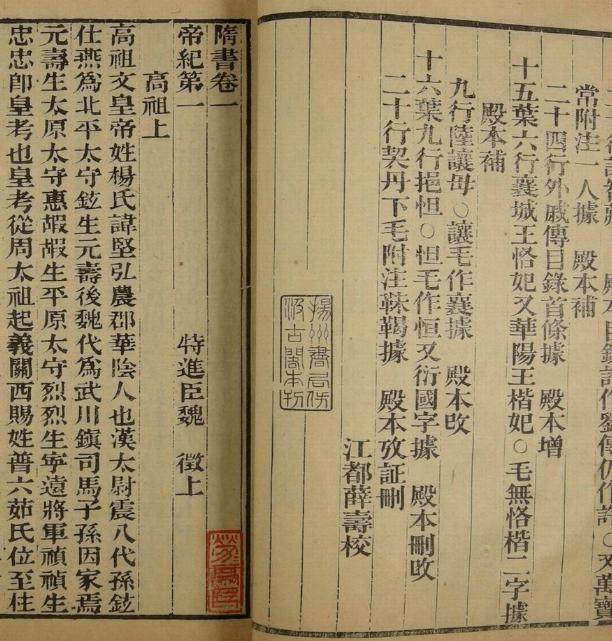 殿本目錄 傳仍作 ○又萬寶
常附注一人據　殿本補
二十四行外戚傳目錄首條據　殿本增
十五葉六行襄城王恪妃又華陽王楷妃○毛無恪楷二字據
殿本補
九行陸讓母○讓毛作襄據　殿本改
十六葉九行挹怛○怛毛作恒又衍國字據　殿本刪改
二十行契丹下毛附注靺鞨據　殿本攷証刪
江都薛壽校
揚州書局仿
汲古閣本刊
隋書卷一
帝紀第一　特進臣魏　徵上
高祖上
高祖文皇帝姓楊氏諱堅弘農郡華陰人也漢太尉震八代孫鉉
仕燕爲北平太守鉉生元壽後魏代爲武川鎮司馬子孫因家焉
元壽生太原太守惠嘏嘏生平原太守烈烈生寧遠將軍禎禎生
忠忠卽皇考也皇考從周太祖起義關西賜姓普六茹氏位至柱